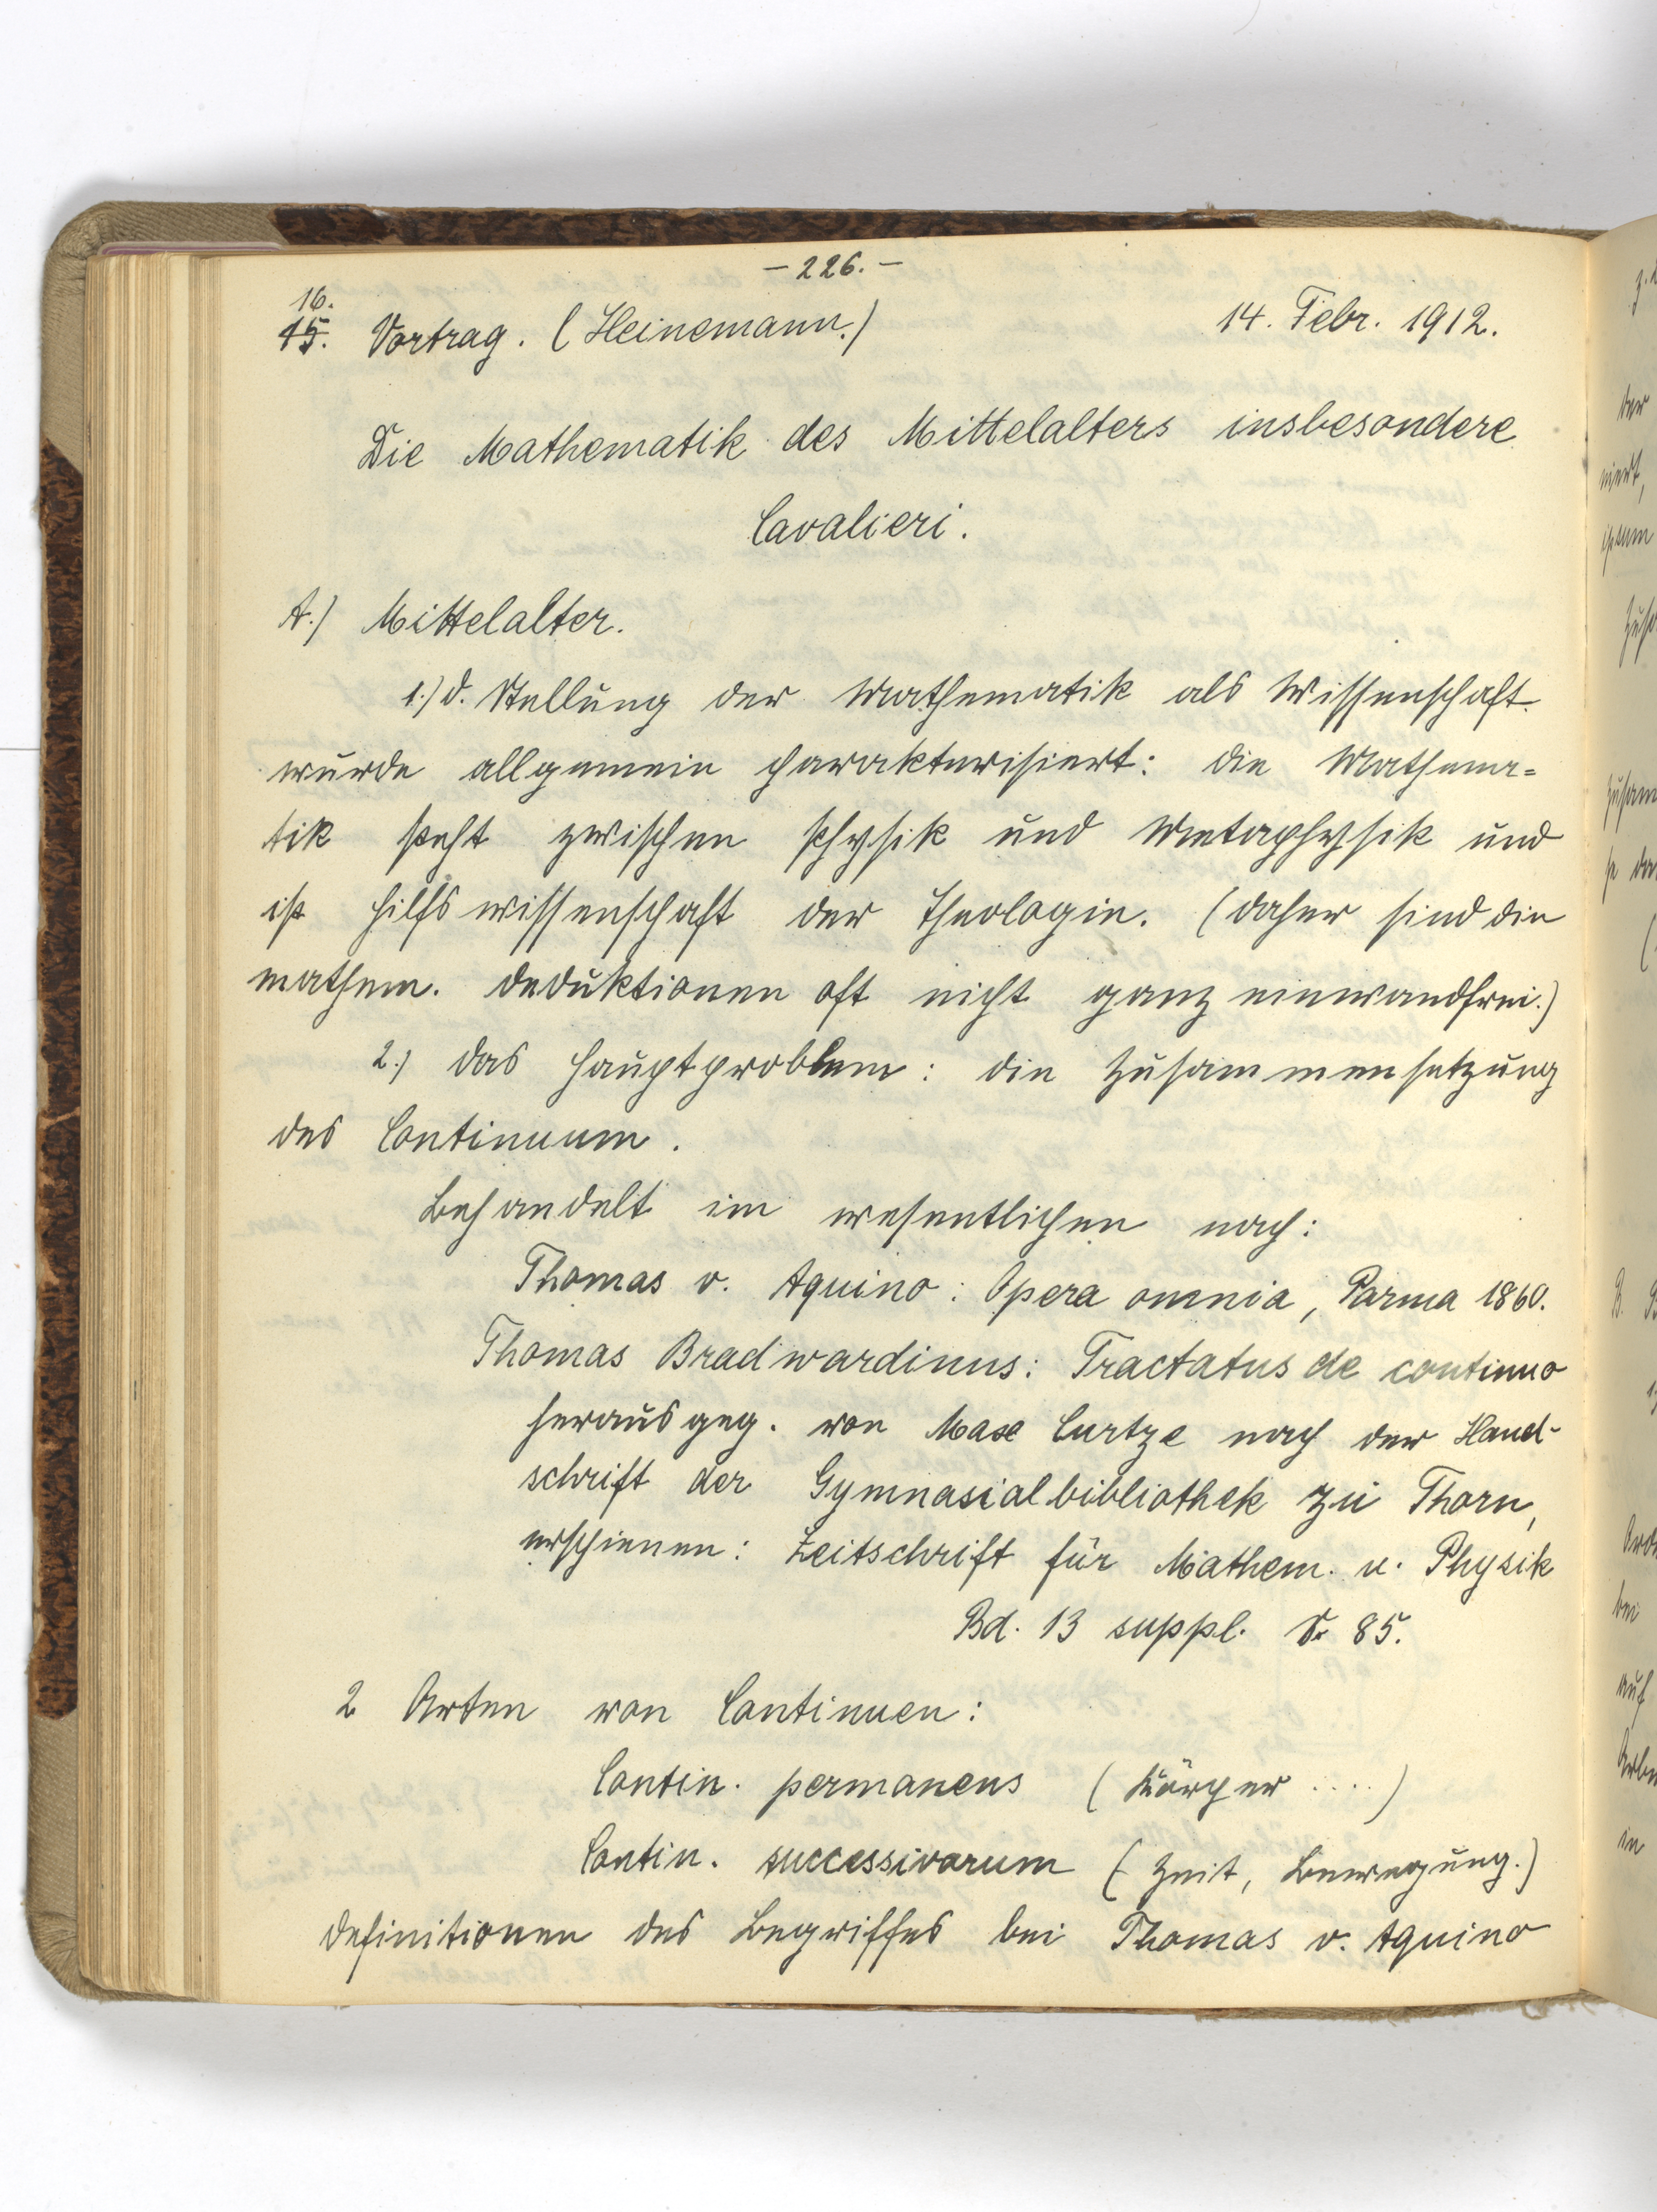 - 226. -
16.
15. Vortrag. (Heinemann.) 14. Febr. 1912.
Die Mathematik des Mittelalters insbesondere
Cavalieri.
A.) Mittelalter.
1.) D. Stellung der Mathematik als Wissenschaft
wurde allgemein charakterisiert: Die Mathema=
tik steht zwischen Physik und Metaphysik und
ist Hilfswissenschaft der Theologie. (Daher sind die
mathem. Deduktionen oft nicht ganz einwandfrei.)
2.) Das Hauptproblem: Die Zusammensetzung
des Continuum.
Behandelt im wesentlichen nach:
Thomas v. Aquino: Opera omnia, Parma 1860.
Thomas Bradwardinus: Tractatus de continuo
herausgeg. von Max Curtze nach der Hand-
schrift der Gymnasialbibliothek zu Thorn,
erschienen: Zeitschrift für Mathem. u. Physik
Bd. 13 suppl. S. 85.
2 Arten von Continuen:
Contin. permanens (Körper ....)
Contin. successivorum (Zeit, Bewegung.)
Definitionen des Begriffes bei Thomas v. Aquino